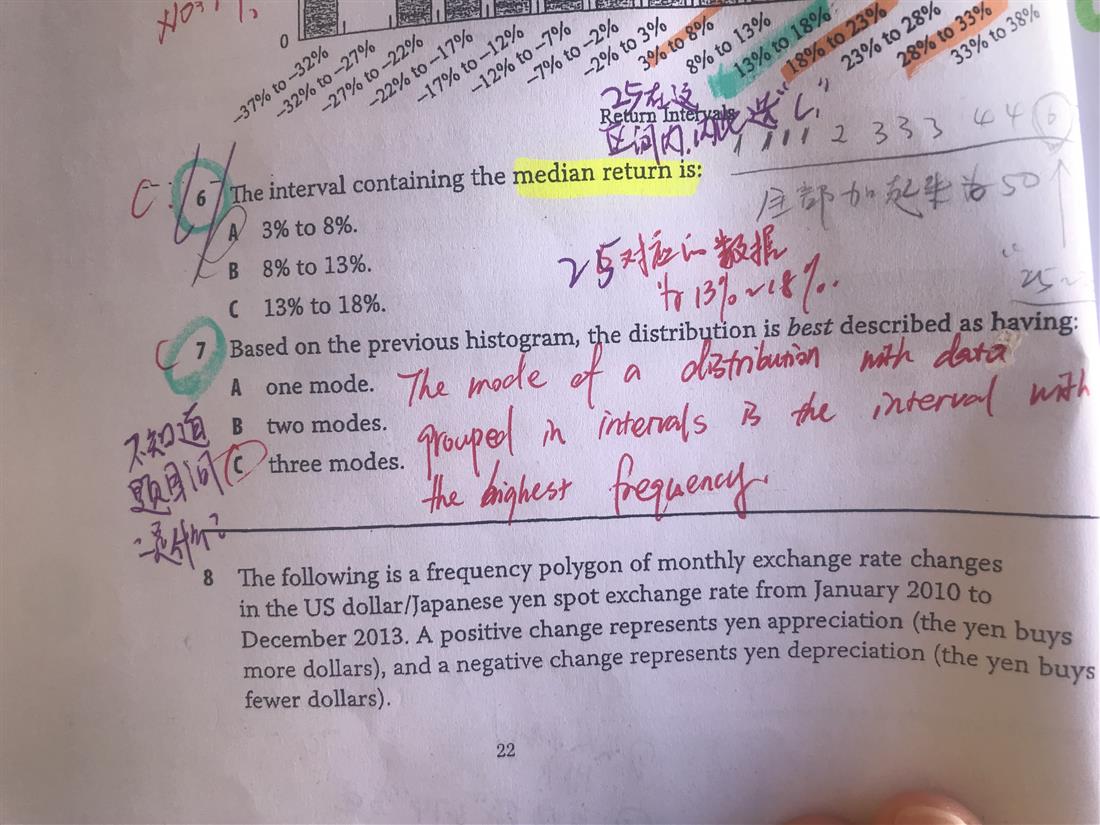 0
-37% to -32%
-32% to -27%
-27% to -22%
-22% to -17%
-17% to -12%
-12% to -7%
-7% to -2%
-2% to 3%
3% to 8%
8% to 13%
13% to 18%
18% to 23%
23% to 28%
28% to 33%
33% to 38%
25在这
Return Intervals
区间内,因此选"C"
1 1 1 1 1 2 3 3 3 4 4 6
全部加起来为50
25
C
6 The interval containing the median return is:
A 3% to 8%.
B 8% to 13%.
C 13% to 18%.
25对应的数据
为13%~18%.
C
7 Based on the previous histogram, the distribution is best described as having:
A one mode.
B two modes.
C three modes.
The mode of a distribution with data
grouped in intervals is the interval with
the highest frequency.
不知道
题目问
是什么?
8 The following is a frequency polygon of monthly exchange rate changes
in the US dollar/Japanese yen spot exchange rate from January 2010 to
December 2013. A positive change represents yen appreciation (the yen buys
more dollars), and a negative change represents yen depreciation (the yen buys
fewer dollars).
22